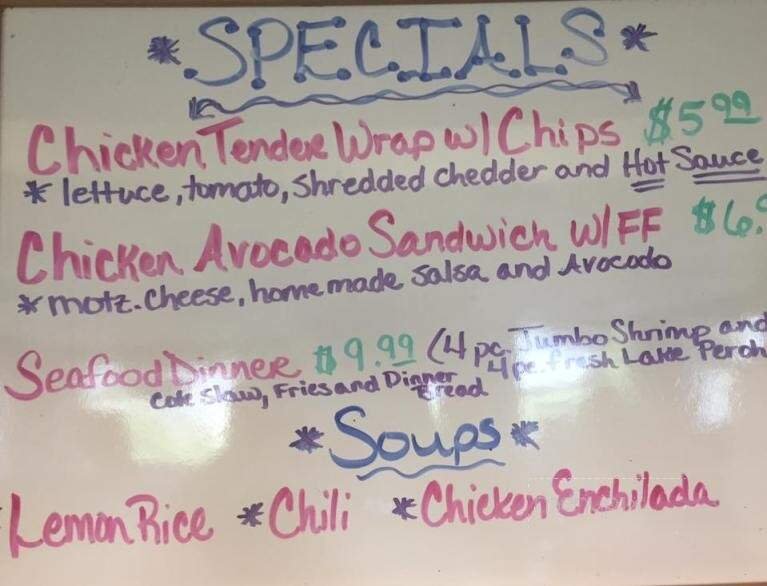 *SPECIALS*
Chicken Tender Wrap w/ Chips $5.99
* lettuce, tomato, shredded chedder and Hot Sauce
Chicken Avocado Sandwich w/FF $6.9
* motz. cheese, homemade salsa and Avocado
Seafood Dinner $9.99 (4 pc. Jumbo Shrimp and
4 pc. fresh Lake Perch
Cole Slaw, Fries and Dinner
Bread
*Soups*
Lemon Rice *Chili *Chicken Enchilada